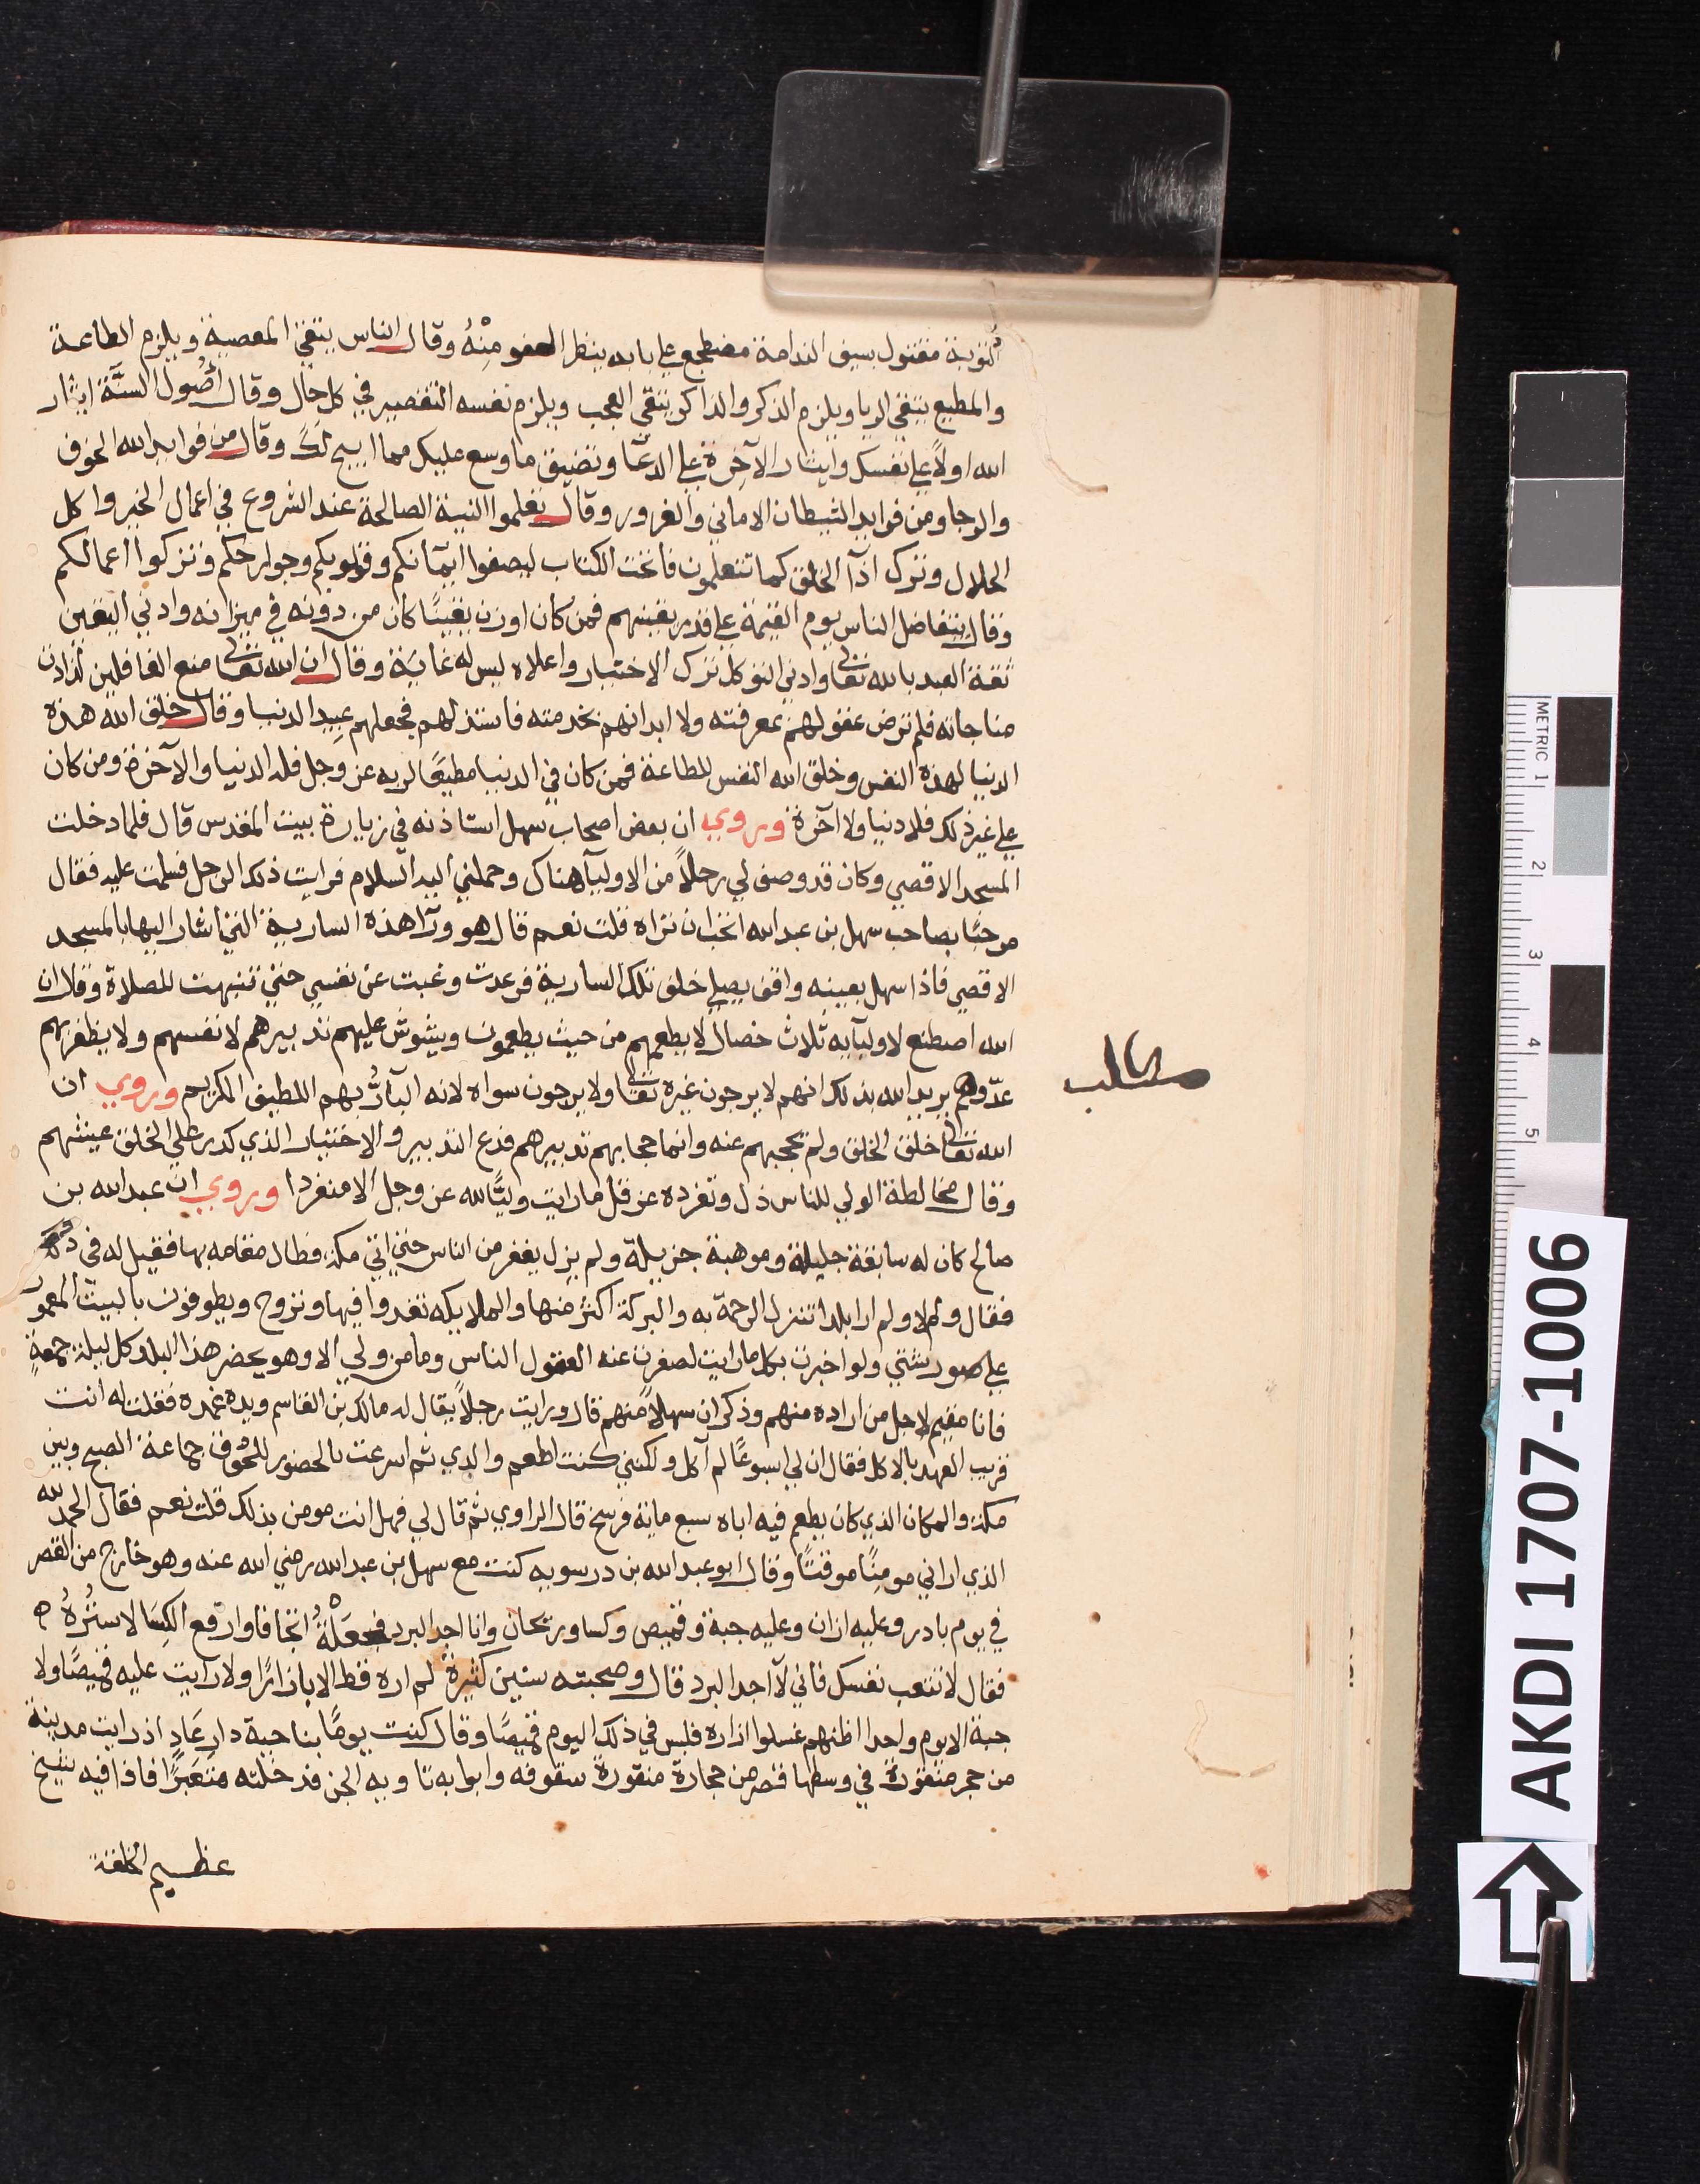 التوبة مقتول بسيف الندامة مضطجع على بابه ينظر العفو منه وقال الناس يتقي المعصية ويلزم الطاعة
والمطيع يتقي الريا ويلزم الذكر والذاكر يتقي العجب ويلزم نفسه التقصير في كل حال وقال أصول السنة ايثار
الله اولًا على نفسك وايثار الآخرة على الدنيا وتضييق ما وسع عليك مما ابيح لك وقال من فوايد الله الخوف
والرجا ومن فوايد الشيطان الاماني والغرور وقال تعلموا النية الصالحة عند الشروع في اعمال الخير واكل
الحلال وترك اذآ الخلق كما تتعلمون فاتحت الكتاب ليصفوا ايمآنكم وقلوبكم وجوارحكم وتزكوا اعمالكم
وقال يتفاضل الناس يوم القيمة على قدر يقينهم فمن كان اوزن يقينًا كان من دونه في ميزانه وادني اليقين
ثقة العبد بالله تعالى وادني التوكل ترك الاختيار واعلاه ليس له غاية وقال ان الله تعالى منع الغافلين لذاذت
مناجاته فلم ترض عقولهم بمعرفته ولا ابدانهم بخدمته فاستذلهم فجعلهم عبيد الدنيا وقال خلق الله هذه
الدنيا لهذه النفس وخلق الله النفس للطاعة فمن كان في الدنيا مطيعًا لربه عز وجل فله الدنيا والآخرة ومن كان
على غير ذلك فلا دنيا ولا آخرة وروي ان بعض اصحاب سهل استاذنه في زيارة بيت المقدس قال فلما دخلت
المسجد الاقصي وكان قد وصف لي رجلًا من الاوليآ هناك وحملني اليه السلام فرايت ذلك الرجل فسلمت عليه فقال
مرحبًا بصاحب سهل بن عبد الله اتحب ان تراه قلت نعم قال هو ورآ هذه السارية التي اشار اليها بالمسجد
الاقصي فاذا سهل بعينه واقف يصلي خلف تلك السارية فرعدت وغبت عن نفسي حتي تنبهت للصلاة وقال ان
الله اصطنع لاوليآيه ثلاث خصال لا يطعمهم من حيث يطعمون ويشوش عليهم تدبيرهم لانفسهم ولا يظفر بهم
عدوهم يريد الله بذلك انهم لا يرجون غيره تعالى ولا يرجون سواه لانه البآرُّ بهم اللطيف الكريم وروي ان
مطلب
الله تعالى خلق الخلق ولم يحجبهم عنه وانما حجابهم تدبيرهم فدع التدبير والاختيار الذي كدر على الخلق عيشهم
وقال مخالطة الولي للناس ذل وتفرده عز قل ما رايت وليًّا لله عز وجل الا منفردا وروي ان عبد الله بن
صالح كان له سابقة جليلة وموهبة جزيلة ولم يزل يفر من الناس حتي اتي مكة فطال مقامه بها فقيل له في ذلك
فقال ولم لا ولم ار ابلدا تنزل الرحمة به والبركة اكثر منها والملايكه تغدوا فيها وتروح ويطوفون بالبيت المعمور
على صور شتي ولو اخبرت بكل ما رايت لصغرت عنه العقول الناس وما من ولي الا وهو يحضر هذا البلد كل ليلة جمعةٍ
فانا مقيم لاجل من اراده منهم وذكر ان سهلًا منهم قال ورايت رجلًا يقال له مالك بن القاسم ويده غمره فقلت له انت
قريب العهد بالاكل فقال ان لي اسبوعًا لم آكل ولكنني كنت اطعم والدي ثم اسرعت بالحضور للحوق جماعة الصبح وبين
مكة والمكان الذي كان يطعم فيه اباه سبع ماية فرسخ قال الراوي ثم قال لي فهل انت مومن بذلك قلت نعم فقال الحمد لله
الذي اراني مومِنًا موقنًا وقال ابو عبد الله بن درسويه كنت مع سهل بن عبد الله رضي الله عنه وهو خارج من القصر
في يوم بادر وعليه ازار وعليه جبة وقميص وكسا وريحان وانا اجد البرد فجعلهُ اتخافا وارفع الكسا لاسترهُ
فقال لا تتعب نفسك فاني لآ اجد البرد قال وصحبته سنين كثيرة لم اره قط الا بازارًا ولا رايت عليه قميصًا ولا
جبة الا يوم واحدا اظنهم غسلوا ازاره فلبس في ذلك اليوم قميصًا وقال كنت يومًا بناحية دار عادٍ اذ رايت مدينة
من حجر منقورة في وسطها قصر من حجارة منقورة سقوفه وابوابه تاويه الجن فدخلته متعبرًا فاذا فيه شيخ
عظيم الخلقة
AKDI 1707-1006
METRIC 1 2 3 4 5